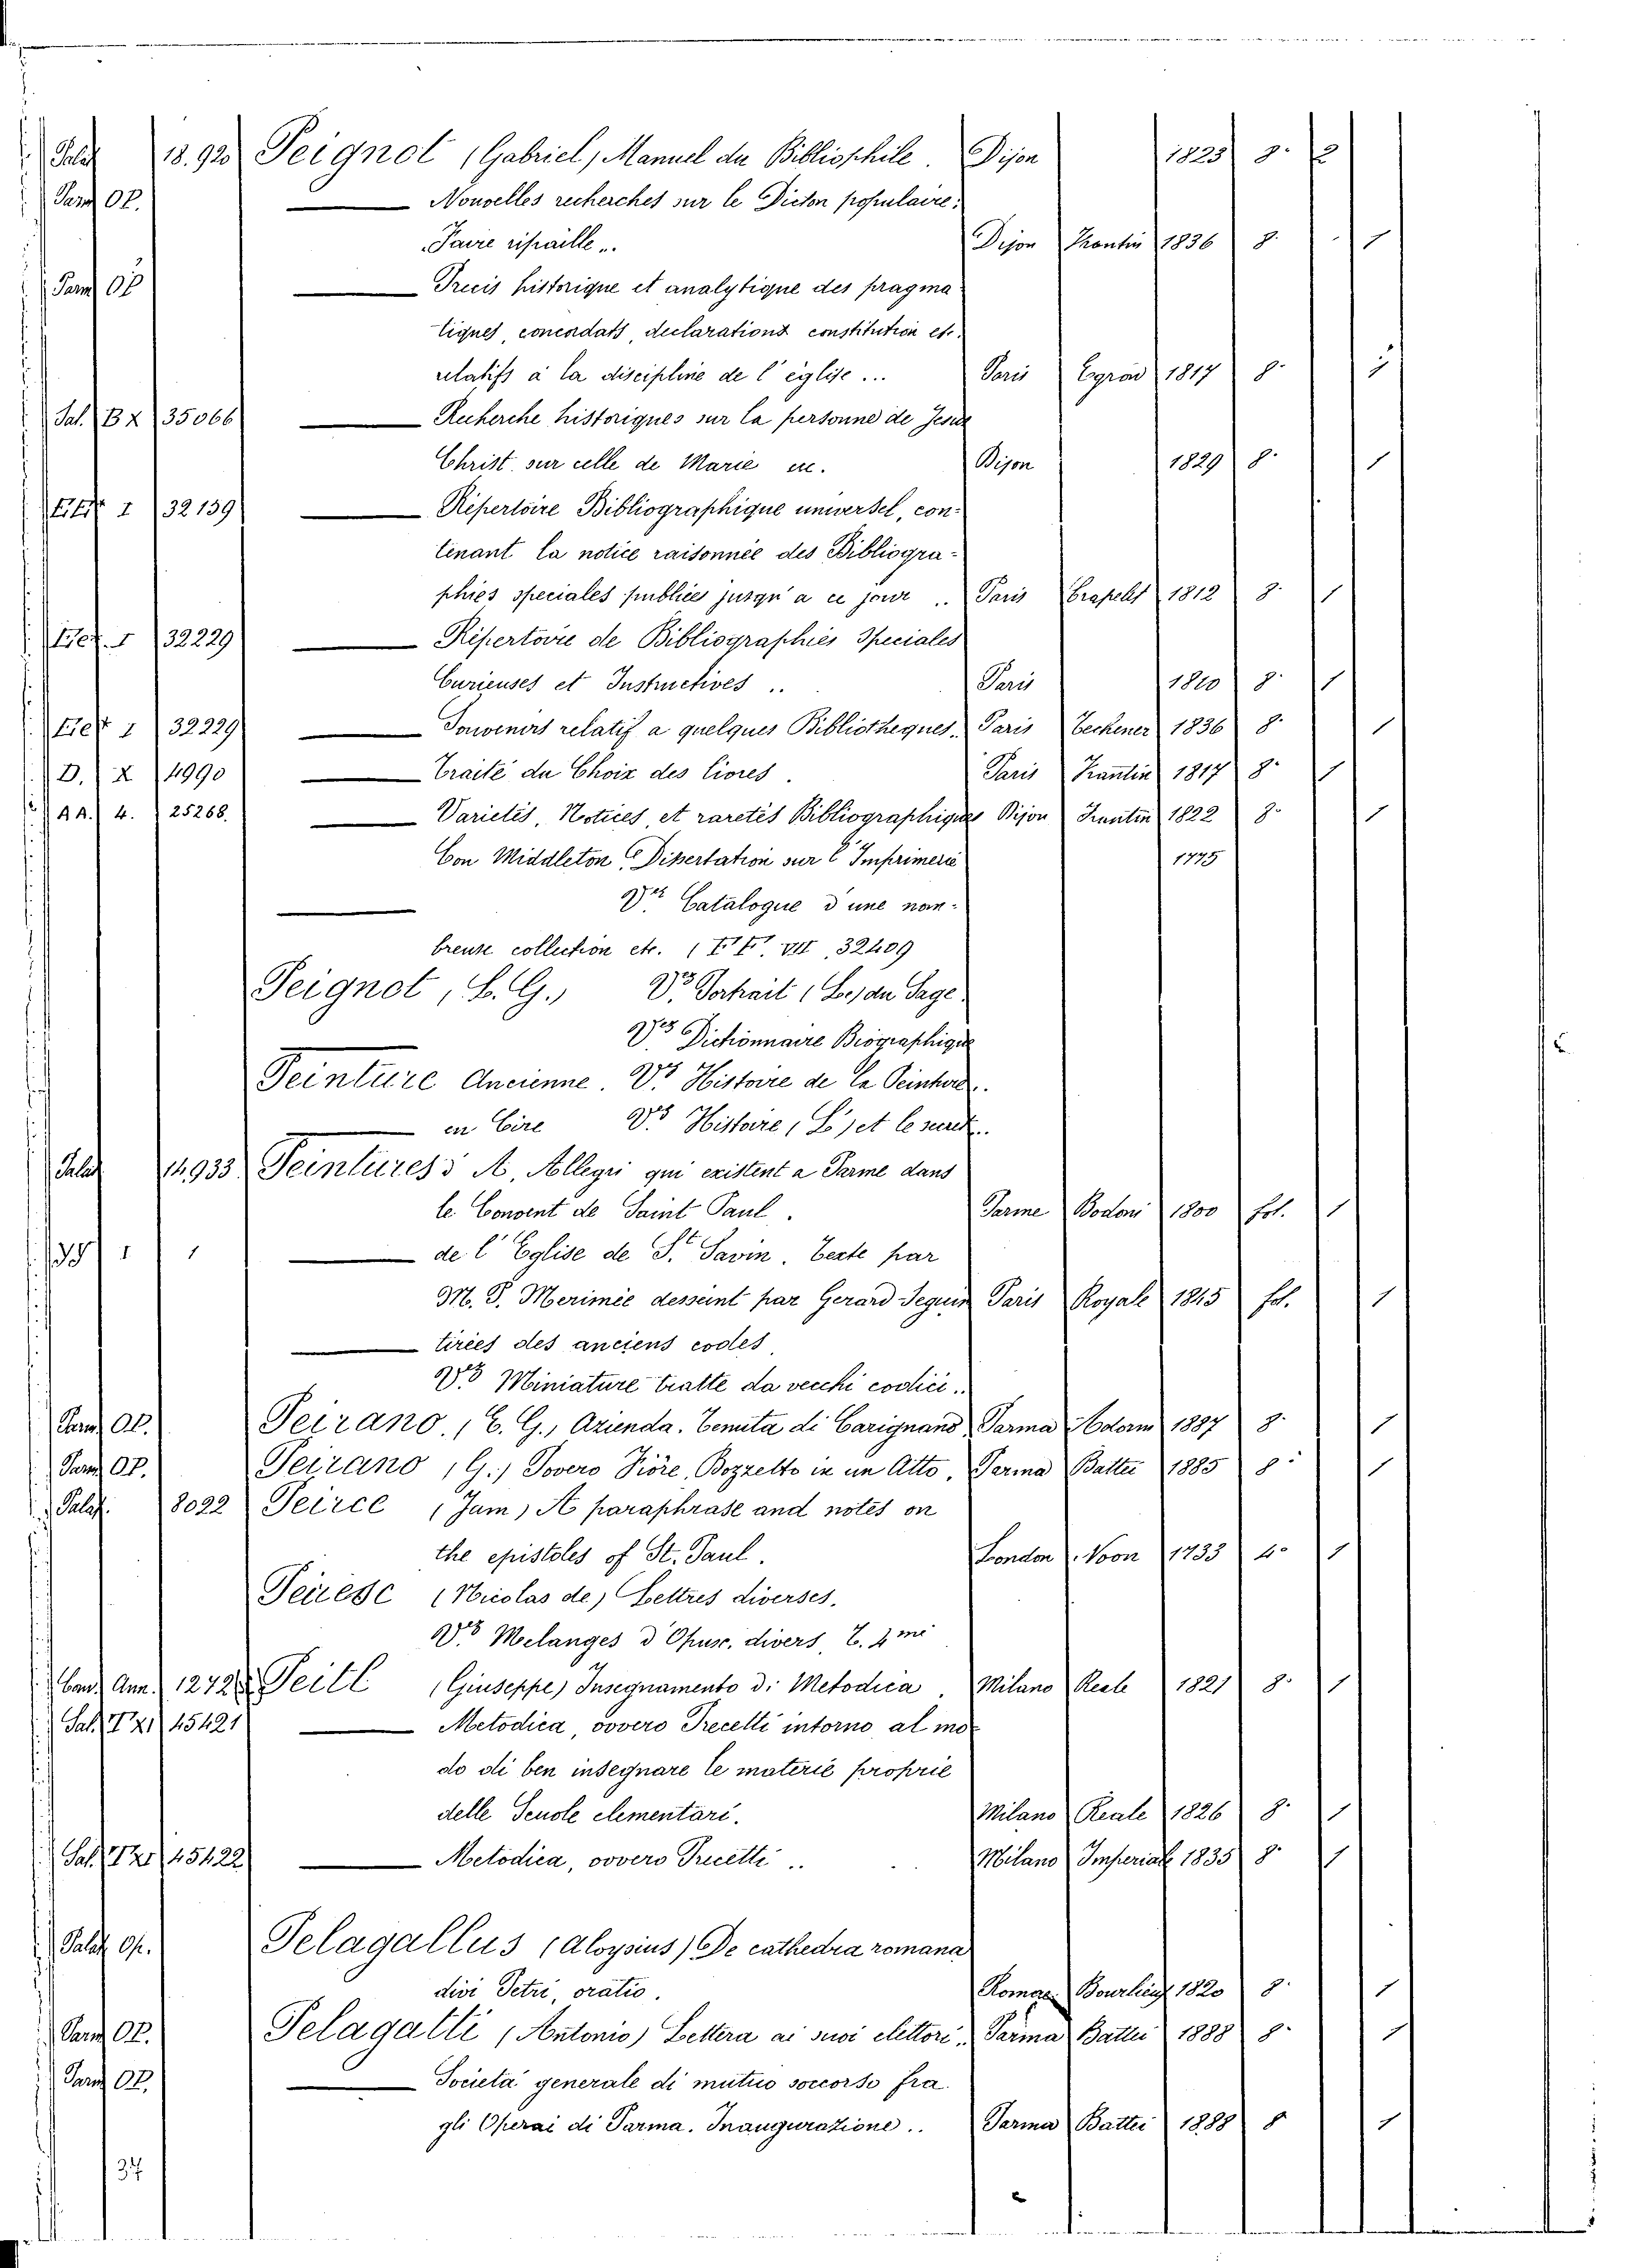 Palat 18.920 Peignot (Gabriel) Manuel du Bibliophile. Dijon 1823 8° 2
Parm OP. — Nouvelles recherches sur le Dicton populaire:
Faire ripaille .. Dijon Frantin 1836 8° 1
Parm OP — Precis historique et analytique des pragma
tiques, concordats, declarations constitution et.
relatifs à la discipline de l'église ... Paris Egron 1817 8° 1
Sal. BX 35066 — Recherche historiques sur la personne de Jesus
Christ sur celle de Marie ec. Dijon 1829 8° 1
I 32139 — Répertoire Bibliographique universel, con-
tenant la notice raisonnée des Bibliogra-
phies speciales publiées jusqu'a ce jour .. Paris Crapelet 1812 8° 1
I 32229 — Répertoire de Bibliographies Speciales
Curieuses et Instructives .. Paris 1810 8° 1
I 32229 — Souvenirs relatif a quelques Bibliotheques. Paris Techener 1836 8° 1
D. X 4990 — Traité du Choix des livres. Paris Frantin 1817 8° 1
AA. 4. 25268. — Varietés, Notices, et raretés Bibliographiques Dijon Frantin 1822 8° 1
Con Middleton, Dissertation sur l'Imprimerie 1775
— Vez Catalogue d'une nom-
breuse collection etc. (FF. VII, 32409
Peignot, L. G., Vez Portrait (Le) du Sage
Vez Dictionnaire Biographique
Peinture Ancienne. Vez Histoire de la Peinture.
— en Cire Vez Histoire (L') et le secret.
Palat 14,933 Peintures d'A. Allegri qui existent a Parme dans
le Convent de Saint Paul. Parme Bodoni 1800 fol. 1
1 1 — de l'Eglise de St Savin. Texte par
M. P. Merimée desseint par Gerard Seguin Paris Royale 1845 fol. 1
— tirées des anciens codes
Vez Miniature tratte da vecchi codici.
Parm OP. Peirano, (E. G., Azienda. Tenuta di Carignano Parma Adorni 1887 8° 1
Parm OP. Peirano (G.) Povero Fiore, Bozzetto in un Atto, Parma Battei 1885 8° 1
Palat. 8022 Peirce (Jam) A paraphrase and notes on
the epistoles of St. Paul. London Noon 1733 4° 1
Peiresc (Nicolas de) Lettres diverses.
Vez Melanges d'Opusc. divers T. 4me
Ann. 1272 Peitl (Giuseppe) Insegnamento di Metodica. Milano Reale 1821 8° 1
Sal. 45421 — Metodica, ovvero Precetti intorno al mo
do di ben insegnare le materie proprie
delle Scuole elementari. Milano Reale 1826 8° 1
Sal. 45422 — Metodica, ovvero Precetti .. Milano Imperiale 1835 8° 1
Palat Op. Pelagallus (Aloysius) De cathedra romana
divi Petri, oratio. Romae Bourlié 1820 8° 1
Parm OP. Pelagatti (Antonio) Lettera ai suoi elettori. Parma Battei 1888 8° 1
Parm OP. — Società generale di mutuo soccorso fra
gli Operai di Parma. Inaugurazione .. Parma Battei 1888 8 1
37